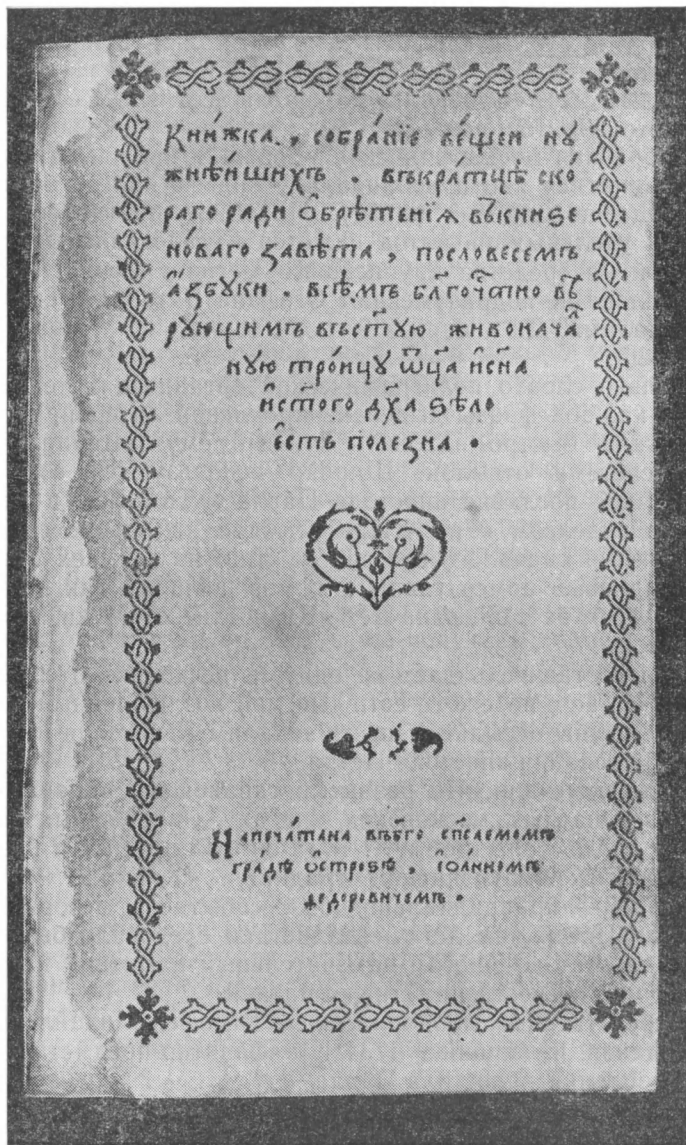 Кни́жка , собра́нїе ве́щей ну
жнѣ́йших̾ . в̾кра́тцѣ ско́
раго ради ѡ҆брѣ́тенїѧ в̾книѕе
но́ваго завѣ́та , пословесемъ
а҆́збꙋки . всѣ́мъ бл҃гоч҇тно вѣ́
рꙋющимъ въс҇тꙋю живонача́л
нꙋю трои́цꙋ ѿц҃а и҆сн҃а
и҆с҇того дх҃а ѕѣло
е҆сть полезна .
Напеча́тана въб҃го сп҃саемомъ
гра́дѣ О҆строзѣ , і҆ѡа́нномъ
Ѳедоровичемъ .